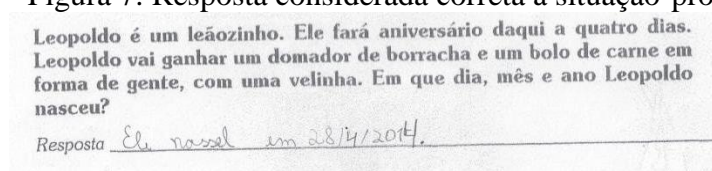 Figura 7. Resposta considerada correta à situação-pro
Leopoldo é um leãozinho. Ele fará aniversário daqui a quatro dias.
Leopoldo vai ganhar um domador de borracha e um bolo de carne em
forma de gente, com uma velinha. Em que dia, mês e ano Leopoldo
nasceu?
Resposta Ele nassel em 28/4/2014.